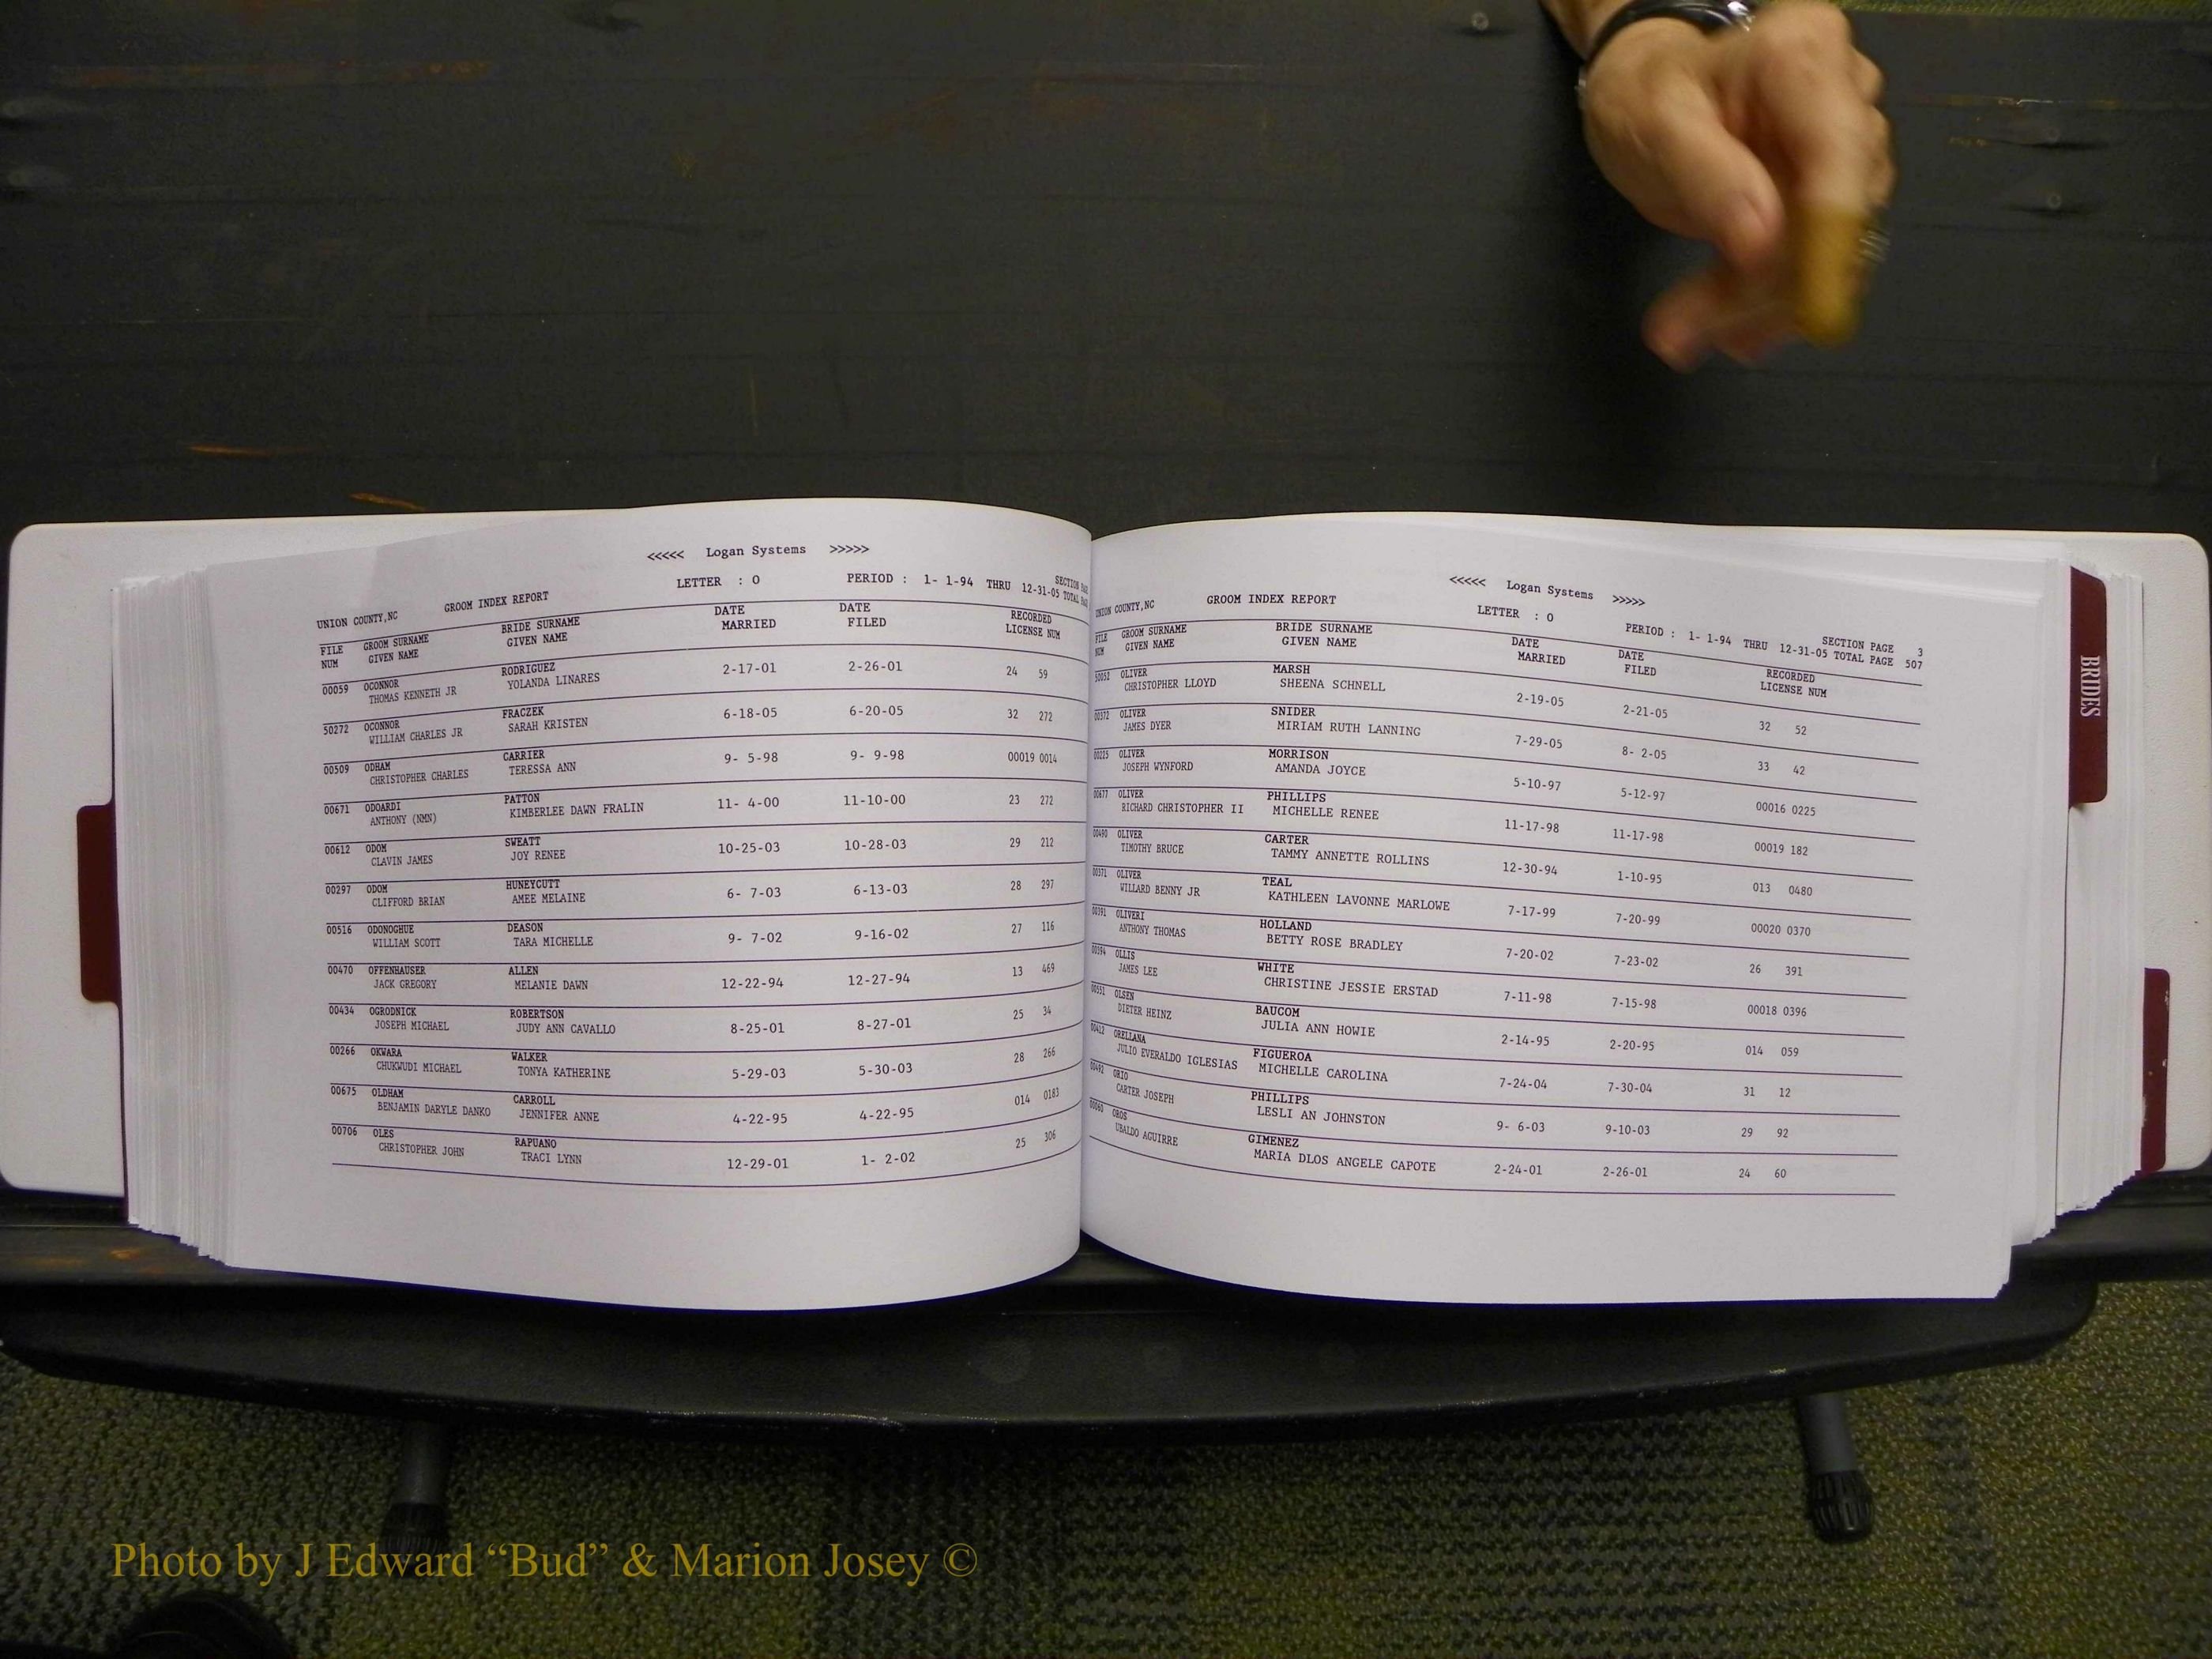 <<<<< Logan Systems >>>>>
LETTER : O PERIOD : 1- 1-94 THRU 12-31-05 TOTAL
SECTION
UNION COUNTY,NC GROOM INDEX REPORT
FILE GROOM SURNAME BRIDE SURNAME DATE DATE RECORDED
NUM GIVEN NAME GIVEN NAME MARRIED FILED LICENSE NUM
00059 OCONNOR RODRIGUEZ 2-17-01 2-26-01 24 59
THOMAS KENNETH JR YOLANDA LINARES
50272 OCONNOR FRACZEK 6-18-05 6-20-05 32 272
WILLIAM CHARLES JR SARAH KRISTEN
00509 ODHAM CARRIER 9- 5-98 9- 9-98 00019 0014
CHRISTOPHER CHARLES TERESSA ANN
00671 ODOARDI PATTON 11- 4-00 11-10-00 23 272
ANTHONY (NMN) KIMBERLEE DAWN FRALIN
00612 ODOM SWEATT 10-25-03 10-28-03 29 212
CLAVIN JAMES JOY RENEE
00297 ODOM HUNEYCUTT 6- 7-03 6-13-03 28 297
CLIFFORD BRIAN AMEE MELAINE
00516 ODONOGHUE DEASON 9- 7-02 9-16-02 27 116
WILLIAM SCOTT TARA MICHELLE
00470 OFFENHAUSER ALLEN 12-22-94 12-27-94 13 469
JACK GREGORY MELANIE DAWN
00434 OGRODNICK ROBERTSON 8-25-01 8-27-01 25 34
JOSEPH MICHAEL JUDY ANN CAVALLO
00266 OKWARA WALKER 5-29-03 5-30-03 28 266
CHUKWUDI MICHAEL TONYA KATHERINE
00675 OLDHAM CARROLL 4-22-95 4-22-95 014 0183
BENJAMIN DARYLE DANKO JENNIFER ANNE
00706 OLES RAPUANO 12-29-01 1- 2-02 25 306
CHRISTOPHER JOHN TRACI LYNN
<<<<< Logan Systems >>>>>
UNION COUNTY,NC GROOM INDEX REPORT LETTER : O PERIOD : 1- 1-94 THRU 12-31-05 TOTAL PAGE 507
SECTION PAGE 3
FILE GROOM SURNAME BRIDE SURNAME DATE DATE RECORDED
NUM GIVEN NAME GIVEN NAME MARRIED FILED LICENSE NUM
50052 OLIVER MARSH 2-19-05 2-21-05 32 52
CHRISTOPHER LLOYD SHEENA SCHNELL
00372 OLIVER SNIDER 7-29-05 8- 2-05 33 42
JAMES DYER MIRIAM RUTH LANNING
00225 OLIVER MORRISON 5-10-97 5-12-97 00016 0225
JOSEPH WYNFORD AMANDA JOYCE
00677 OLIVER PHILLIPS 11-17-98 11-17-98 00019 182
RICHARD CHRISTOPHER II MICHELLE RENEE
00490 OLIVER CARTER 12-30-94 1-10-95 013 0480
TIMOTHY BRUCE TAMMY ANNETTE ROLLINS
00371 OLIVER TEAL 7-17-99 7-20-99 00020 0370
WILLARD BENNY JR KATHLEEN LAVONNE MARLOWE
00391 OLIVERI HOLLAND 7-20-02 7-23-02 26 391
ANTHONY THOMAS BETTY ROSE BRADLEY
00394 OLLIS WHITE 7-11-98 7-15-98 00018 0396
JAMES LEE CHRISTINE JESSIE ERSTAD
00551 OLSEN BAUCOM 2-14-95 2-20-95 014 059
DIETER HEINZ JULIA ANN HOWIE
00412 ORELLANA FIGUEROA 7-24-04 7-30-04 31 12
JULIO EVERALDO IGLESIAS MICHELLE CAROLINA
00492 ORIO PHILLIPS 9- 6-03 9-10-03 29 92
CARTER JOSEPH LESLI AN JOHNSTON
00060 OROS GIMENEZ 2-24-01 2-26-01 24 60
UBALDO AGUIRRE MARIA DLOS ANGELE CAPOTE
BRIDES
Photo by J Edward “Bud” & Marion Josey ©